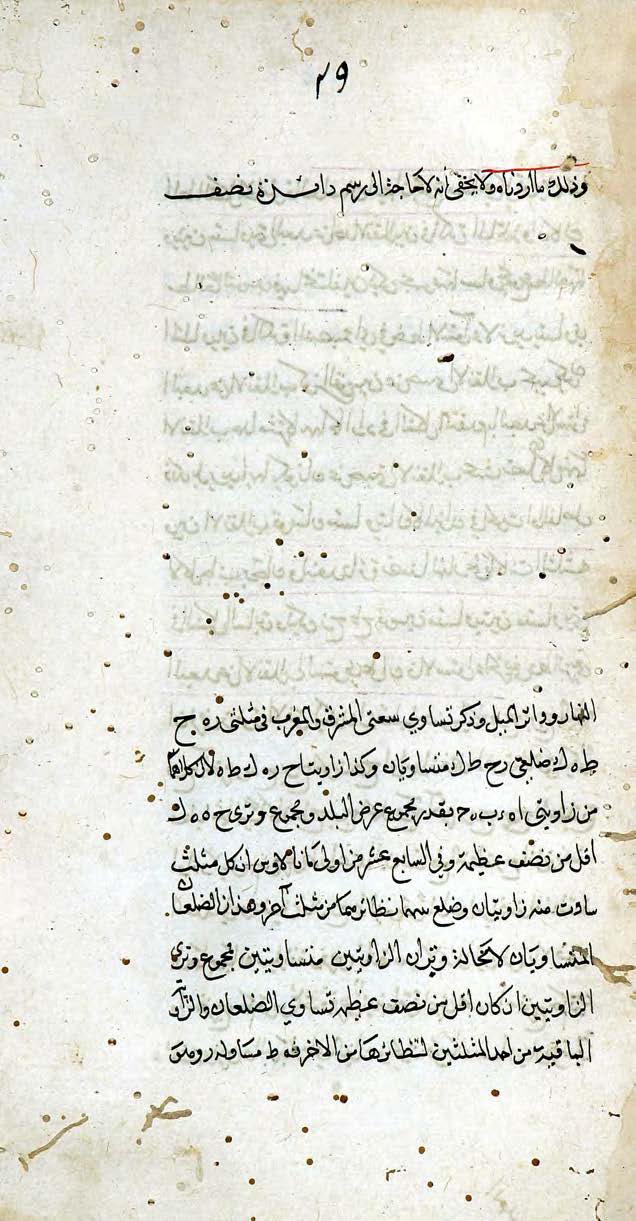 ٣٩
وذلك ما اردناه ولا يخفى انه لا حاجة الى رسم دائرة نصف
النهار ودائر الميل وذكر تساوي سعتى المشرق والمغرب فى مثلثى ره ح
ط ه ك ضلعي رح ط ك متساويان وكذا زاويتا ح ر ه ك ط ه لان كلاهما
من زاويتى ا ه ب ه بقدر مجموع عرض البلد ومجموع وترى ح ه ه ك
اقل من نصف عظيمة وفي السابع عشر من اولى مانالاوس ان كل مثلث
ساوت منه زاويتان وضلع نظائرهما من مثلث آخر وهذان الضلعان
المتساويان لا محالة وتران الزاويتين متساويتين فمجموع وترى
الزاويتين ان كان اقل من نصف عظيمة تساوي الضلعان والزاوية
الباقية من احد المثلثين لنظائرها من الاخر فه ط مساو له ر ومن